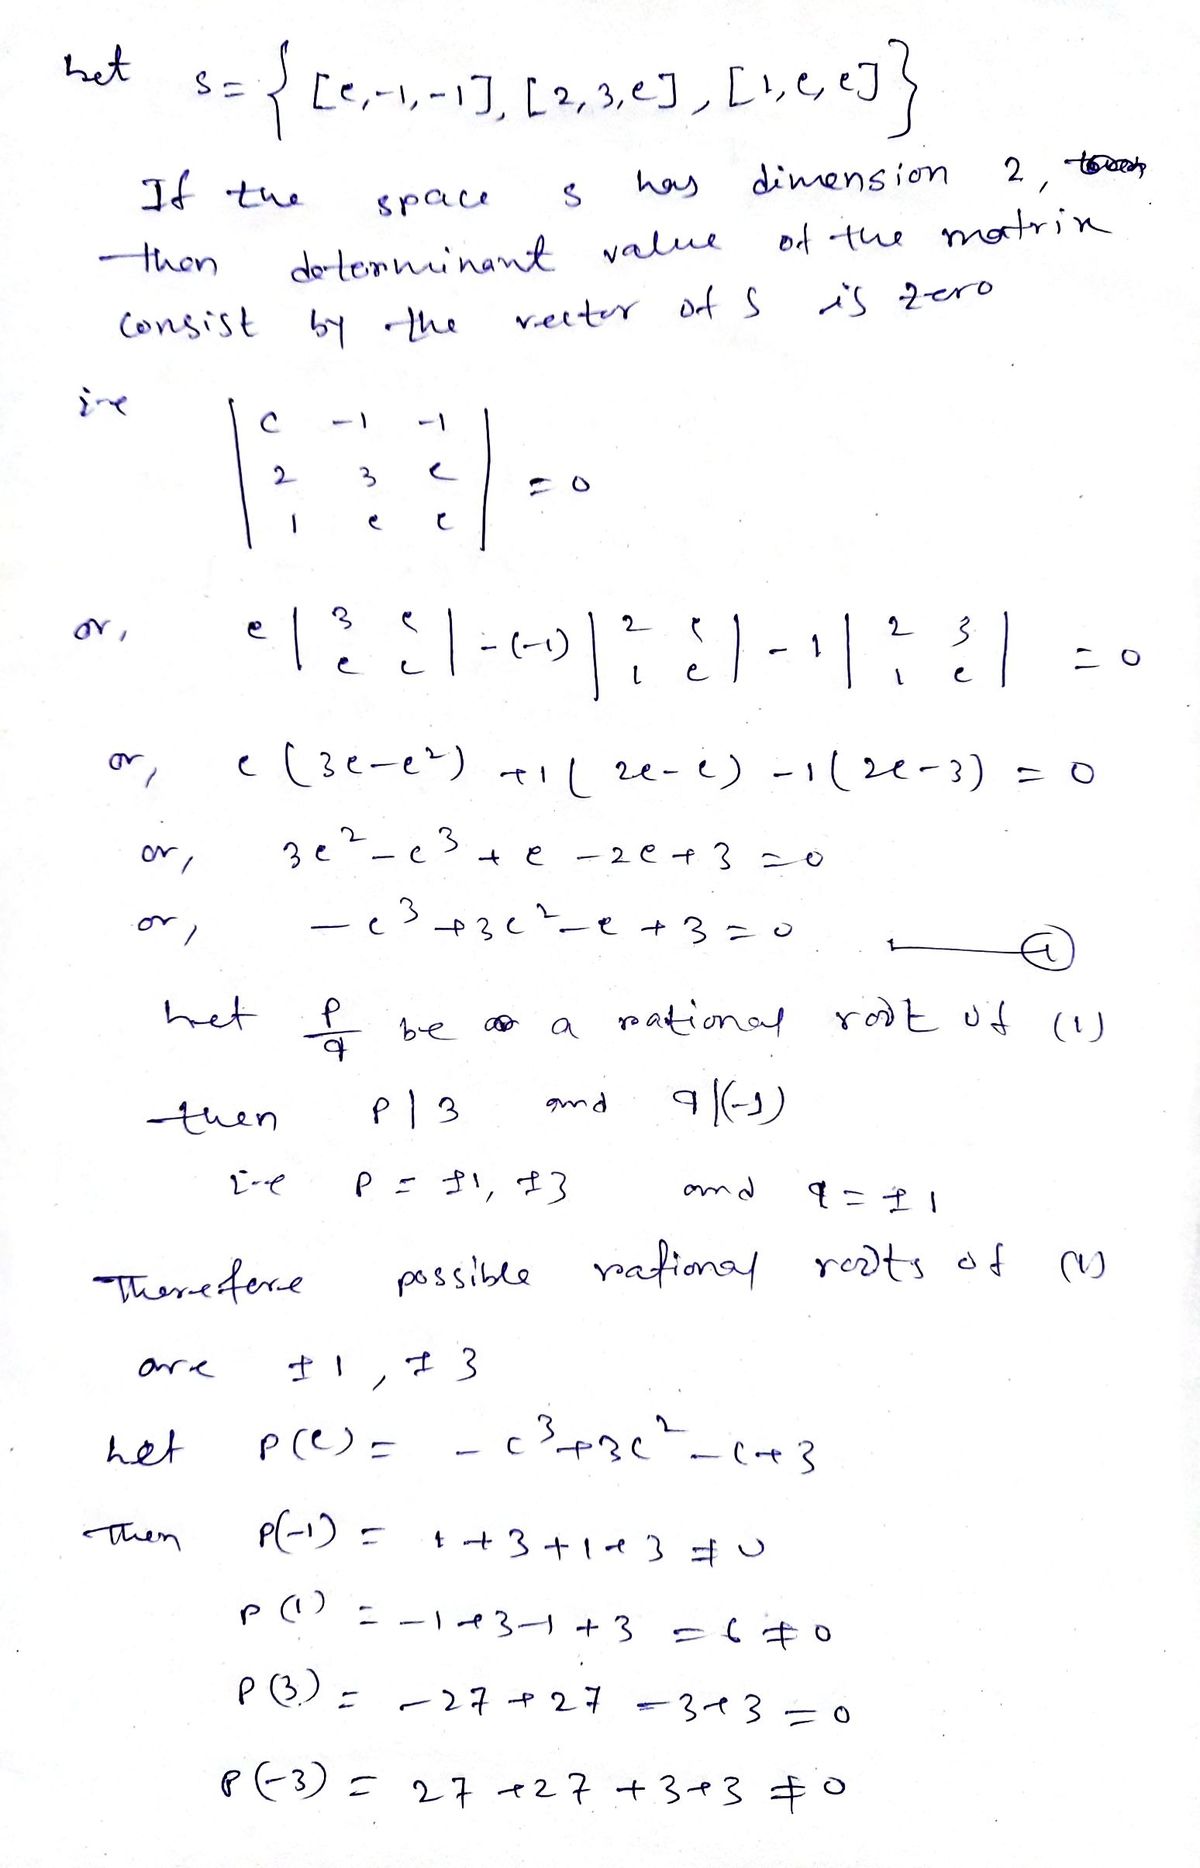 Let S = { [c, -1, -1], [2, 3, c], [1, c, c] }
If the space S has dimension 2,
then determinant value of the matrix
consist by the vector of S is zero
i.e | c -1 -1 |
| 2 3 c | = 0
| 1 c c |
or, c | 3 c | -(-1) | 2 c | -1 | 2 3 | = 0
| c c | | 1 c | | 1 c |
or, c (3c-c²) +1( 2c-c) -1(2c-3) = 0
or, 3c² - c³ + c - 2c + 3 = 0
or, -c³ + 3c² - c + 3 = 0 (1)
Let p/q be a rational root of (1)
then p | 3 and q |(-1)
i.e p = ±1, ±3 and q = ±1
Therefore possible rational roots of (1)
are ±1, ±3
Let p(c) = -c³+3c²-c+3
Then p(-1) = 1+3+1+3 ≠ 0
p(1) = -1+3-1+3 = 6 ≠ 0
p(3) = -27+27-3+3 = 0
p(-3) = 27+27+3+3 ≠ 0